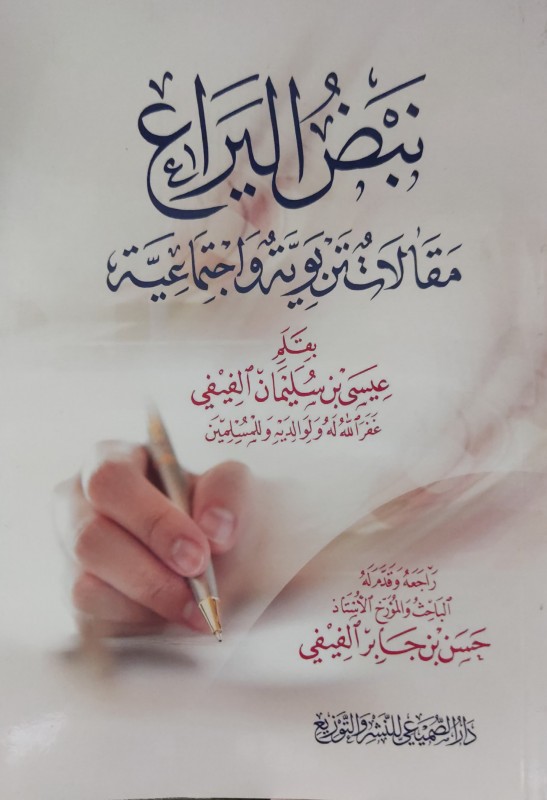 نَبْضُ اليَرَاعِ
مَقَالَاتٌ تَرْبَوِيَّةٌ وَاجْتِمَاعِيَّة
بِقَلَمِ
عِيسَى بْنِ سُلَيْمَانَ الفَيْفِي
غَفَرَ اللهُ لَهُ وَلِوَالِدَيْهِ وَلِلْمُسْلِمِينَ
رَاجَعَهُ وَقَدَّمَ لَهُ
البَاحِثُ وَالمُؤَرِّخُ الأُسْتَاذُ
حَسَنُ بْنُ جَابِرٍ الفَيْفِي
دَارُ الصُّمَيْعِي لِلنَّشْرِ وَالتَّوْزِيعِ